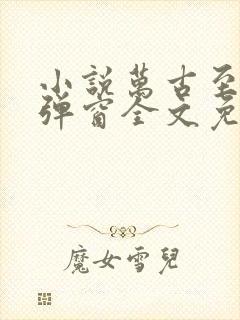 小説萬古至
彈窗全文免
魔女雪兒